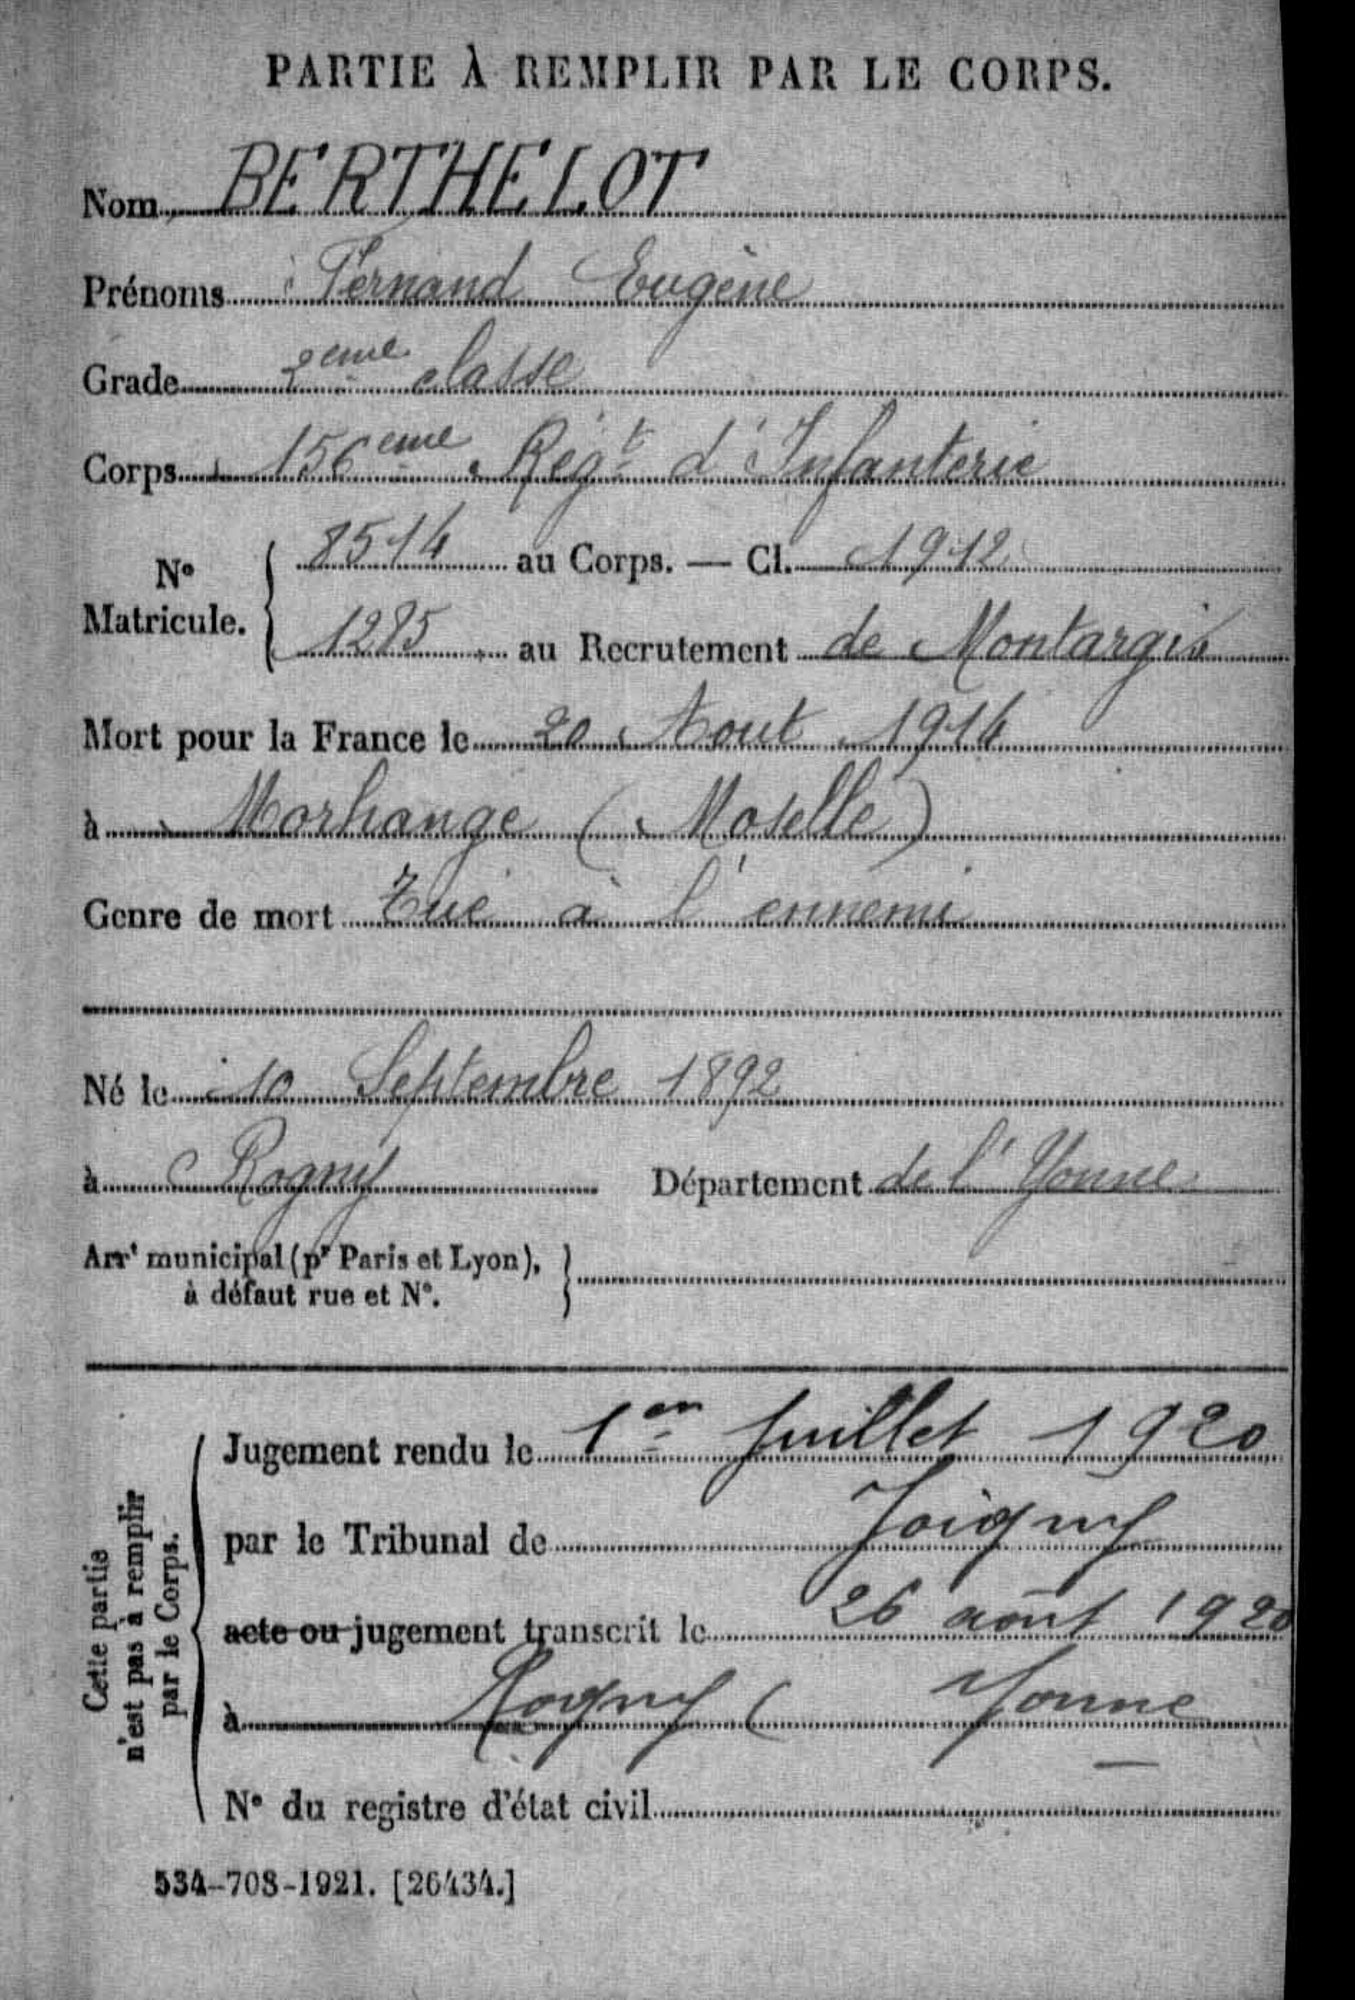 PARTIE À REMPLIR PAR LE CORPS.
Nom BERTHELOT
Prénoms Fernand Eugène
Grade 2eme classe
Corps 156eme Régt d'Infanterie
No Matricule. { 8514 au Corps. — Cl. 1912
1285 au Recrutement de Montargis
Mort pour la France le 20 Aout 1914
à Morhange (Moselle)
Genre de mort Tué à l'ennemi
Né le 10 Septembre 1892
à Rogny Département de l'Yonne
Arrt municipal (pr Paris et Lyon), }
à défaut rue et No.
Cette partie
n'est pas à remplir
par le Corps.
Jugement rendu le 1er Juillet 1920
par le Tribunal de Joigny
acte ou jugement transcrit le 26 août 1920
à Rogny ( Yonne
No du registre d'état civil
534-708-1921. [26434.]